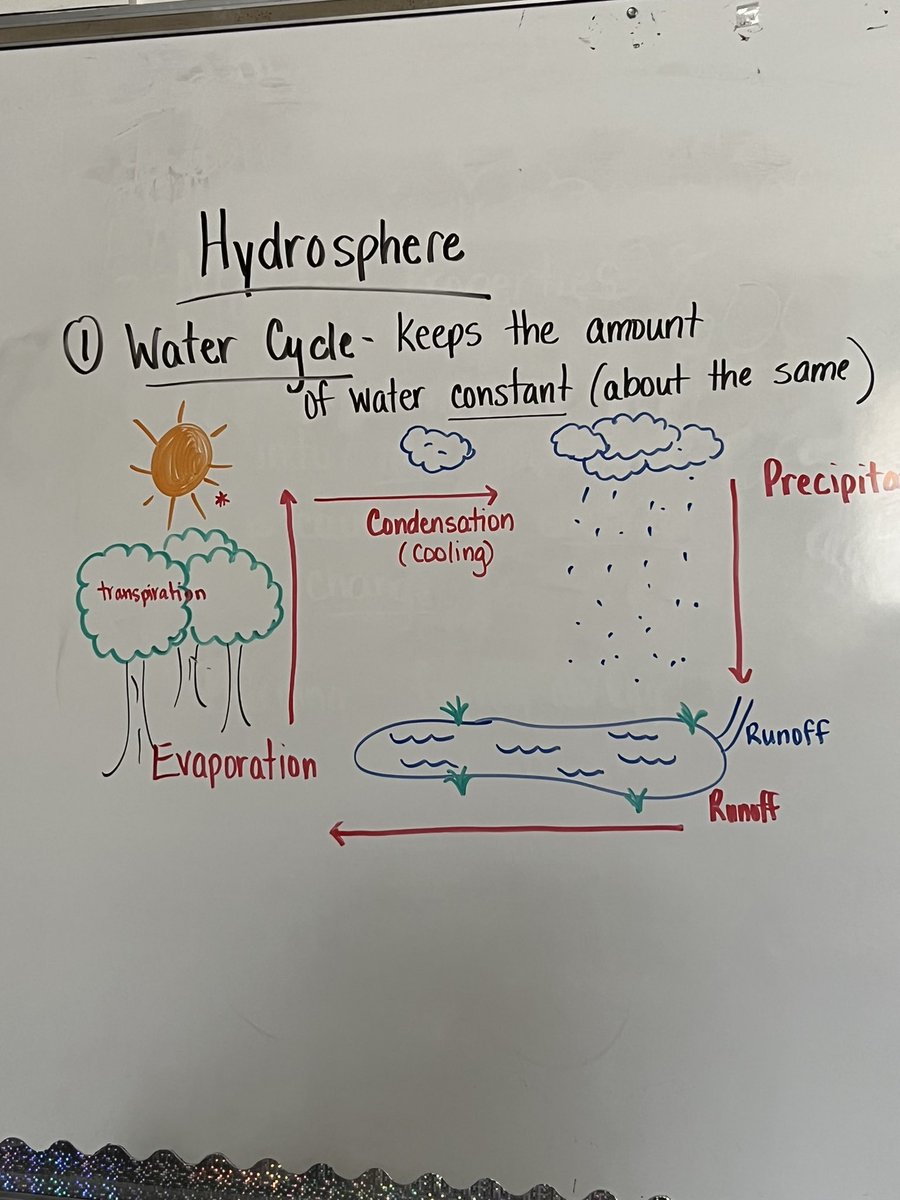 Hydrosphere
① Water Cycle - keeps the amount
of water constant (about the same)
*
Precipita
Condensation
(cooling)
transpiration
Runoff
Evaporation
Runoff